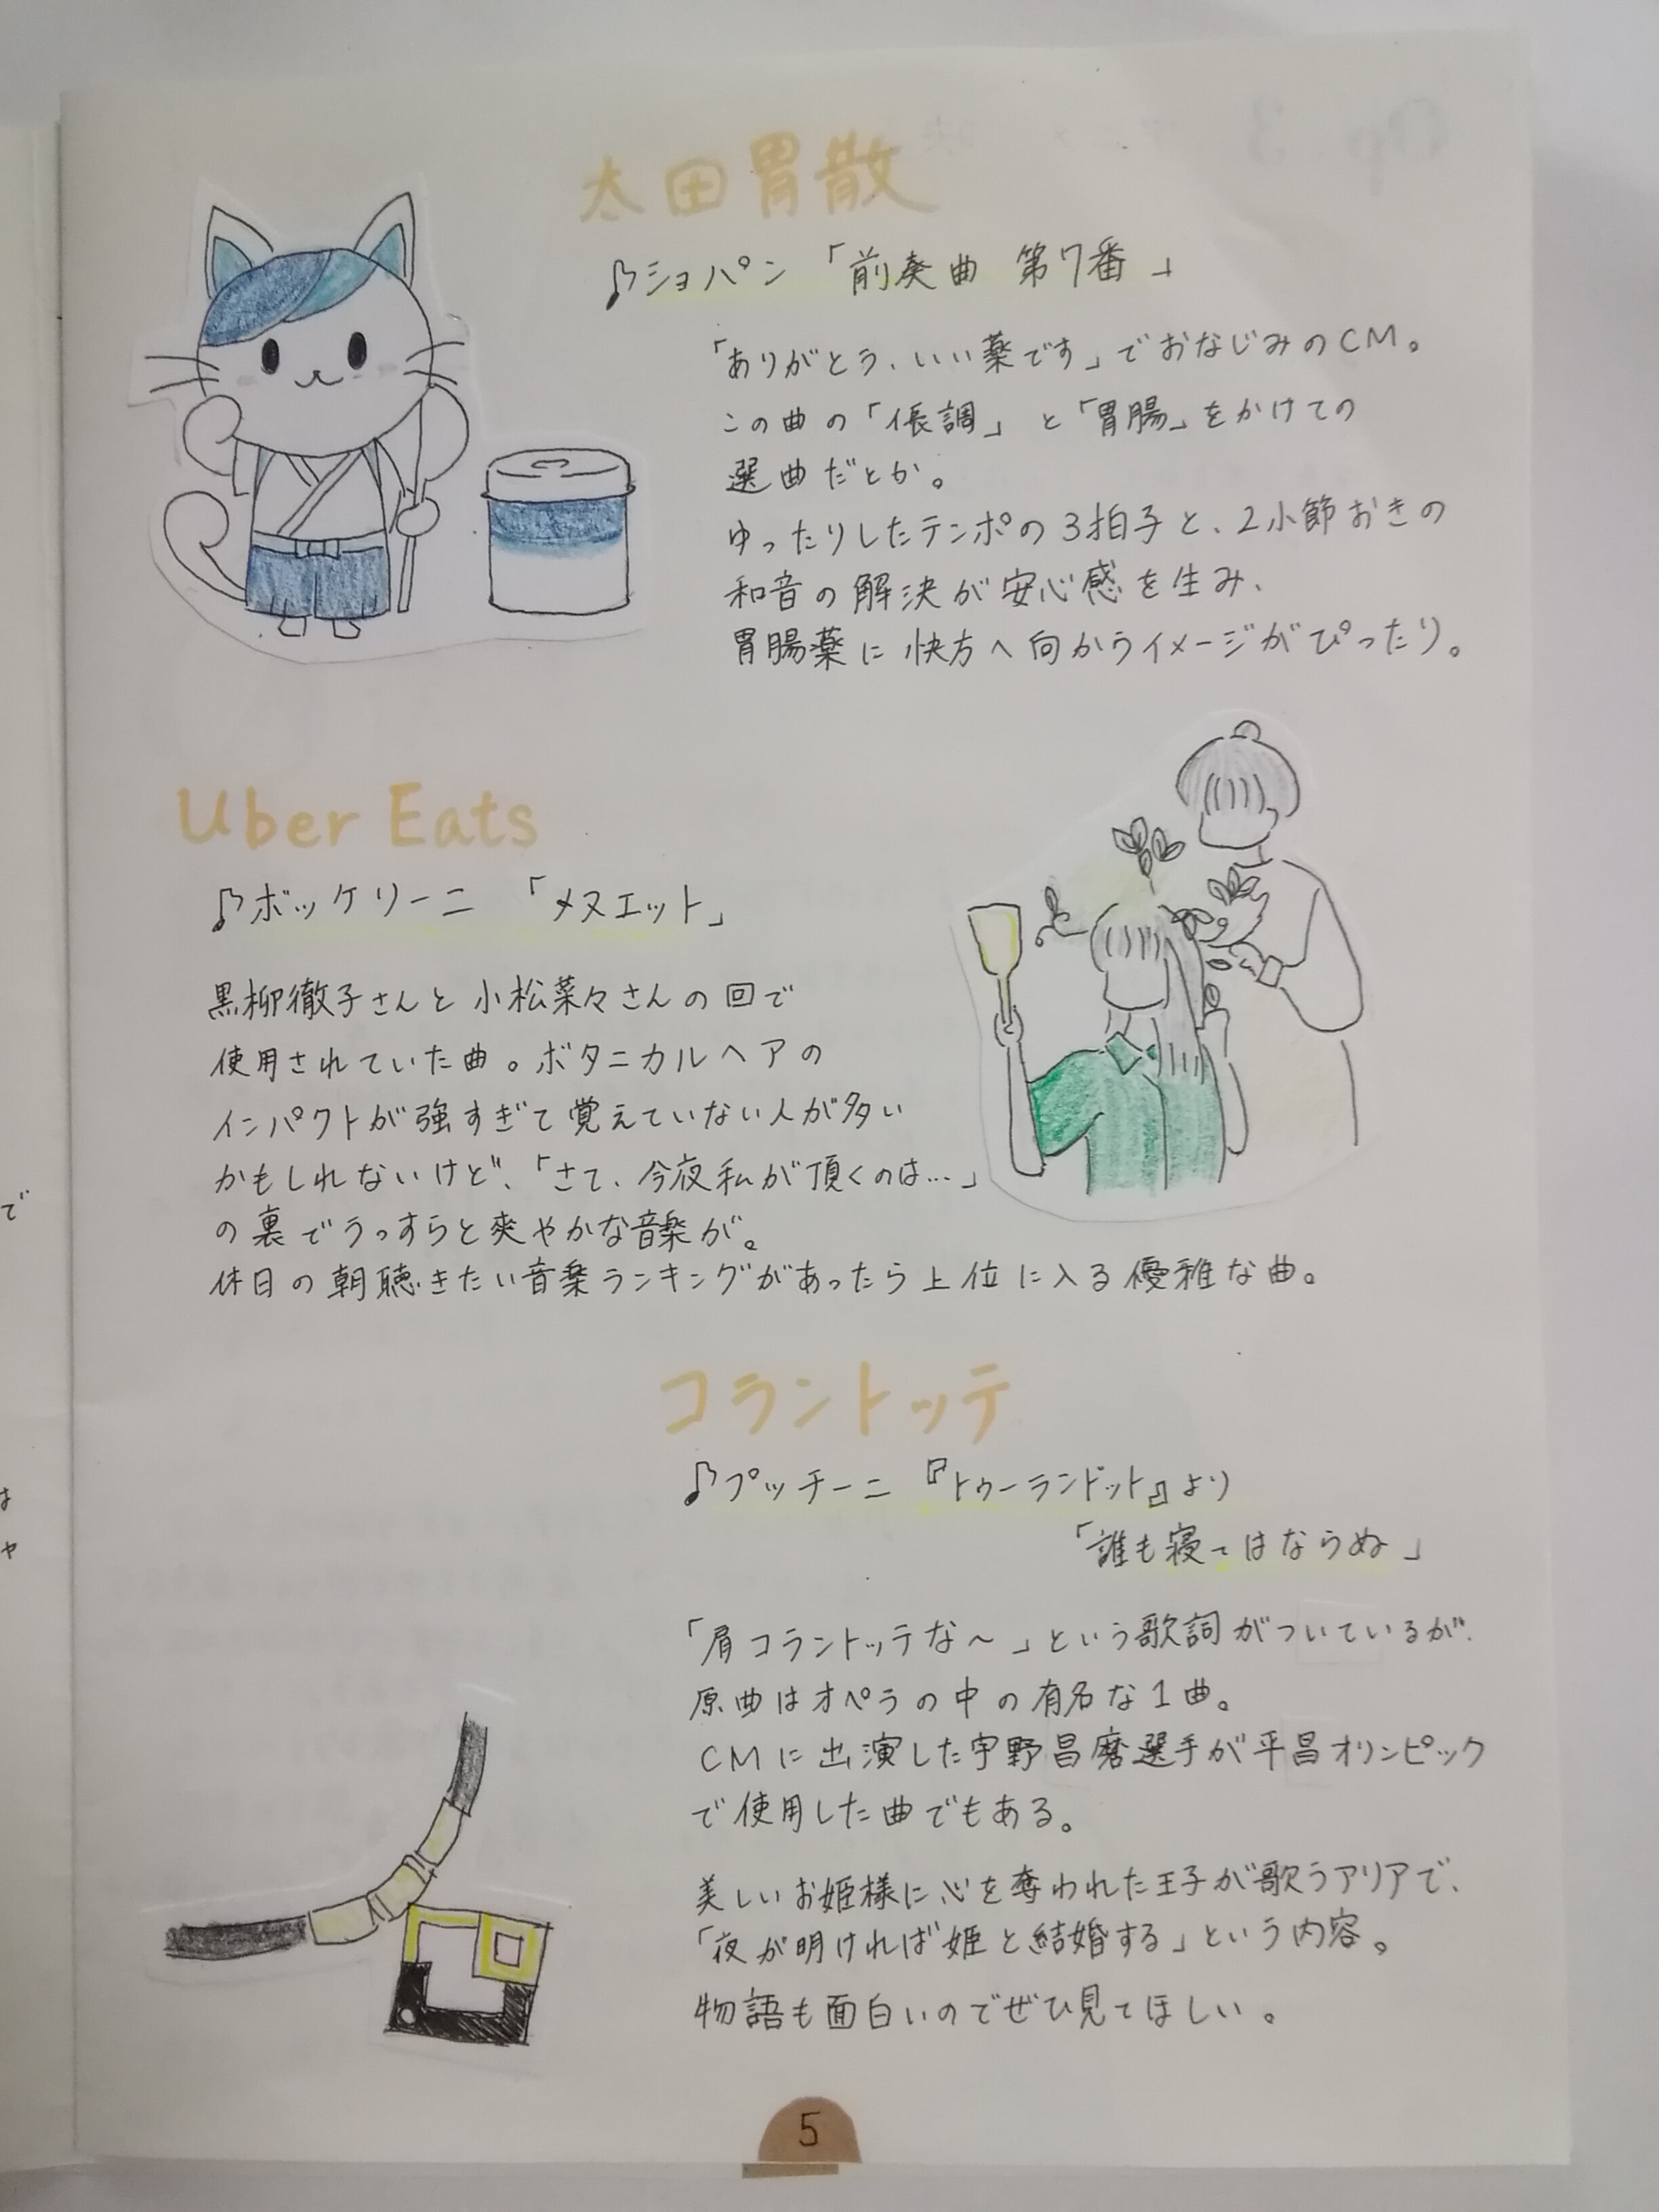 太田胃散
♪ショパン 「前奏曲 第7番」
「ありがとう、いい薬です」でおなじみのCM。
この曲の「イ長調」と「胃腸」をかけての
選曲だとか。
ゆったりしたテンポの3拍子と、2小節おきの
和音の解決が安心感を生み、
胃腸薬に快方へ向かうイメージがぴったり。
Uber Eats
♪ボッケリーニ 「メヌエット」
黒柳徹子さんと小松菜々さんの回で
使用されていた曲。ボタニカルヘアの
インパクトが強すぎて覚えていない人が多い
かもしれないけど、「さて、今夜私が頂くのは…」
の裏でうっすらと爽やかな音楽が。
休日の朝聴きたい音楽ランキングがあったら上位に入る優雅な曲。
コラントッテ
♪プッチーニ 『トゥーランドット』より
「誰も寝てはならぬ」
「肩コラントッテな〜」という歌詞がついているが、
原曲はオペラの中の有名な1曲。
CMに出演した宇野昌磨選手が平昌オリンピック
で使用した曲でもある。
美しいお姫様に心を奪われた王子が歌うアリアで、
「夜が明ければ姫と結婚する」という内容。
物語も面白いのでぜひ見てほしい。
5